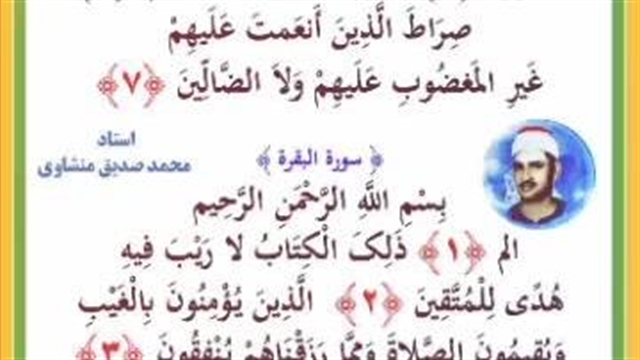 صِرَاطَ الَّذِينَ أَنعَمتَ عَلَيهِمْ
غَيرِ المَغضُوبِ عَلَيهِمْ وَلاَ الضَّالِّينَ ﴿٧﴾
استاد
محمد صدیق منشاوی
﴿ سورة البقرة ﴾
بِسْمِ اللَّهِ الرَّحْمَنِ الرَّحِيمِ
الم ﴿١﴾ ذَلِكَ الْكِتَابُ لا رَيْبَ فِيهِ
هُدًى لِلْمُتَّقِينَ ﴿٢﴾ الَّذِينَ يُؤْمِنُونَ بِالْغَيْبِ
وَيُقِيمُونَ الصَّلاةَ وَمِمَّا رَزَقْنَاهُمْ يُنْفِقُونَ ﴿٣﴾